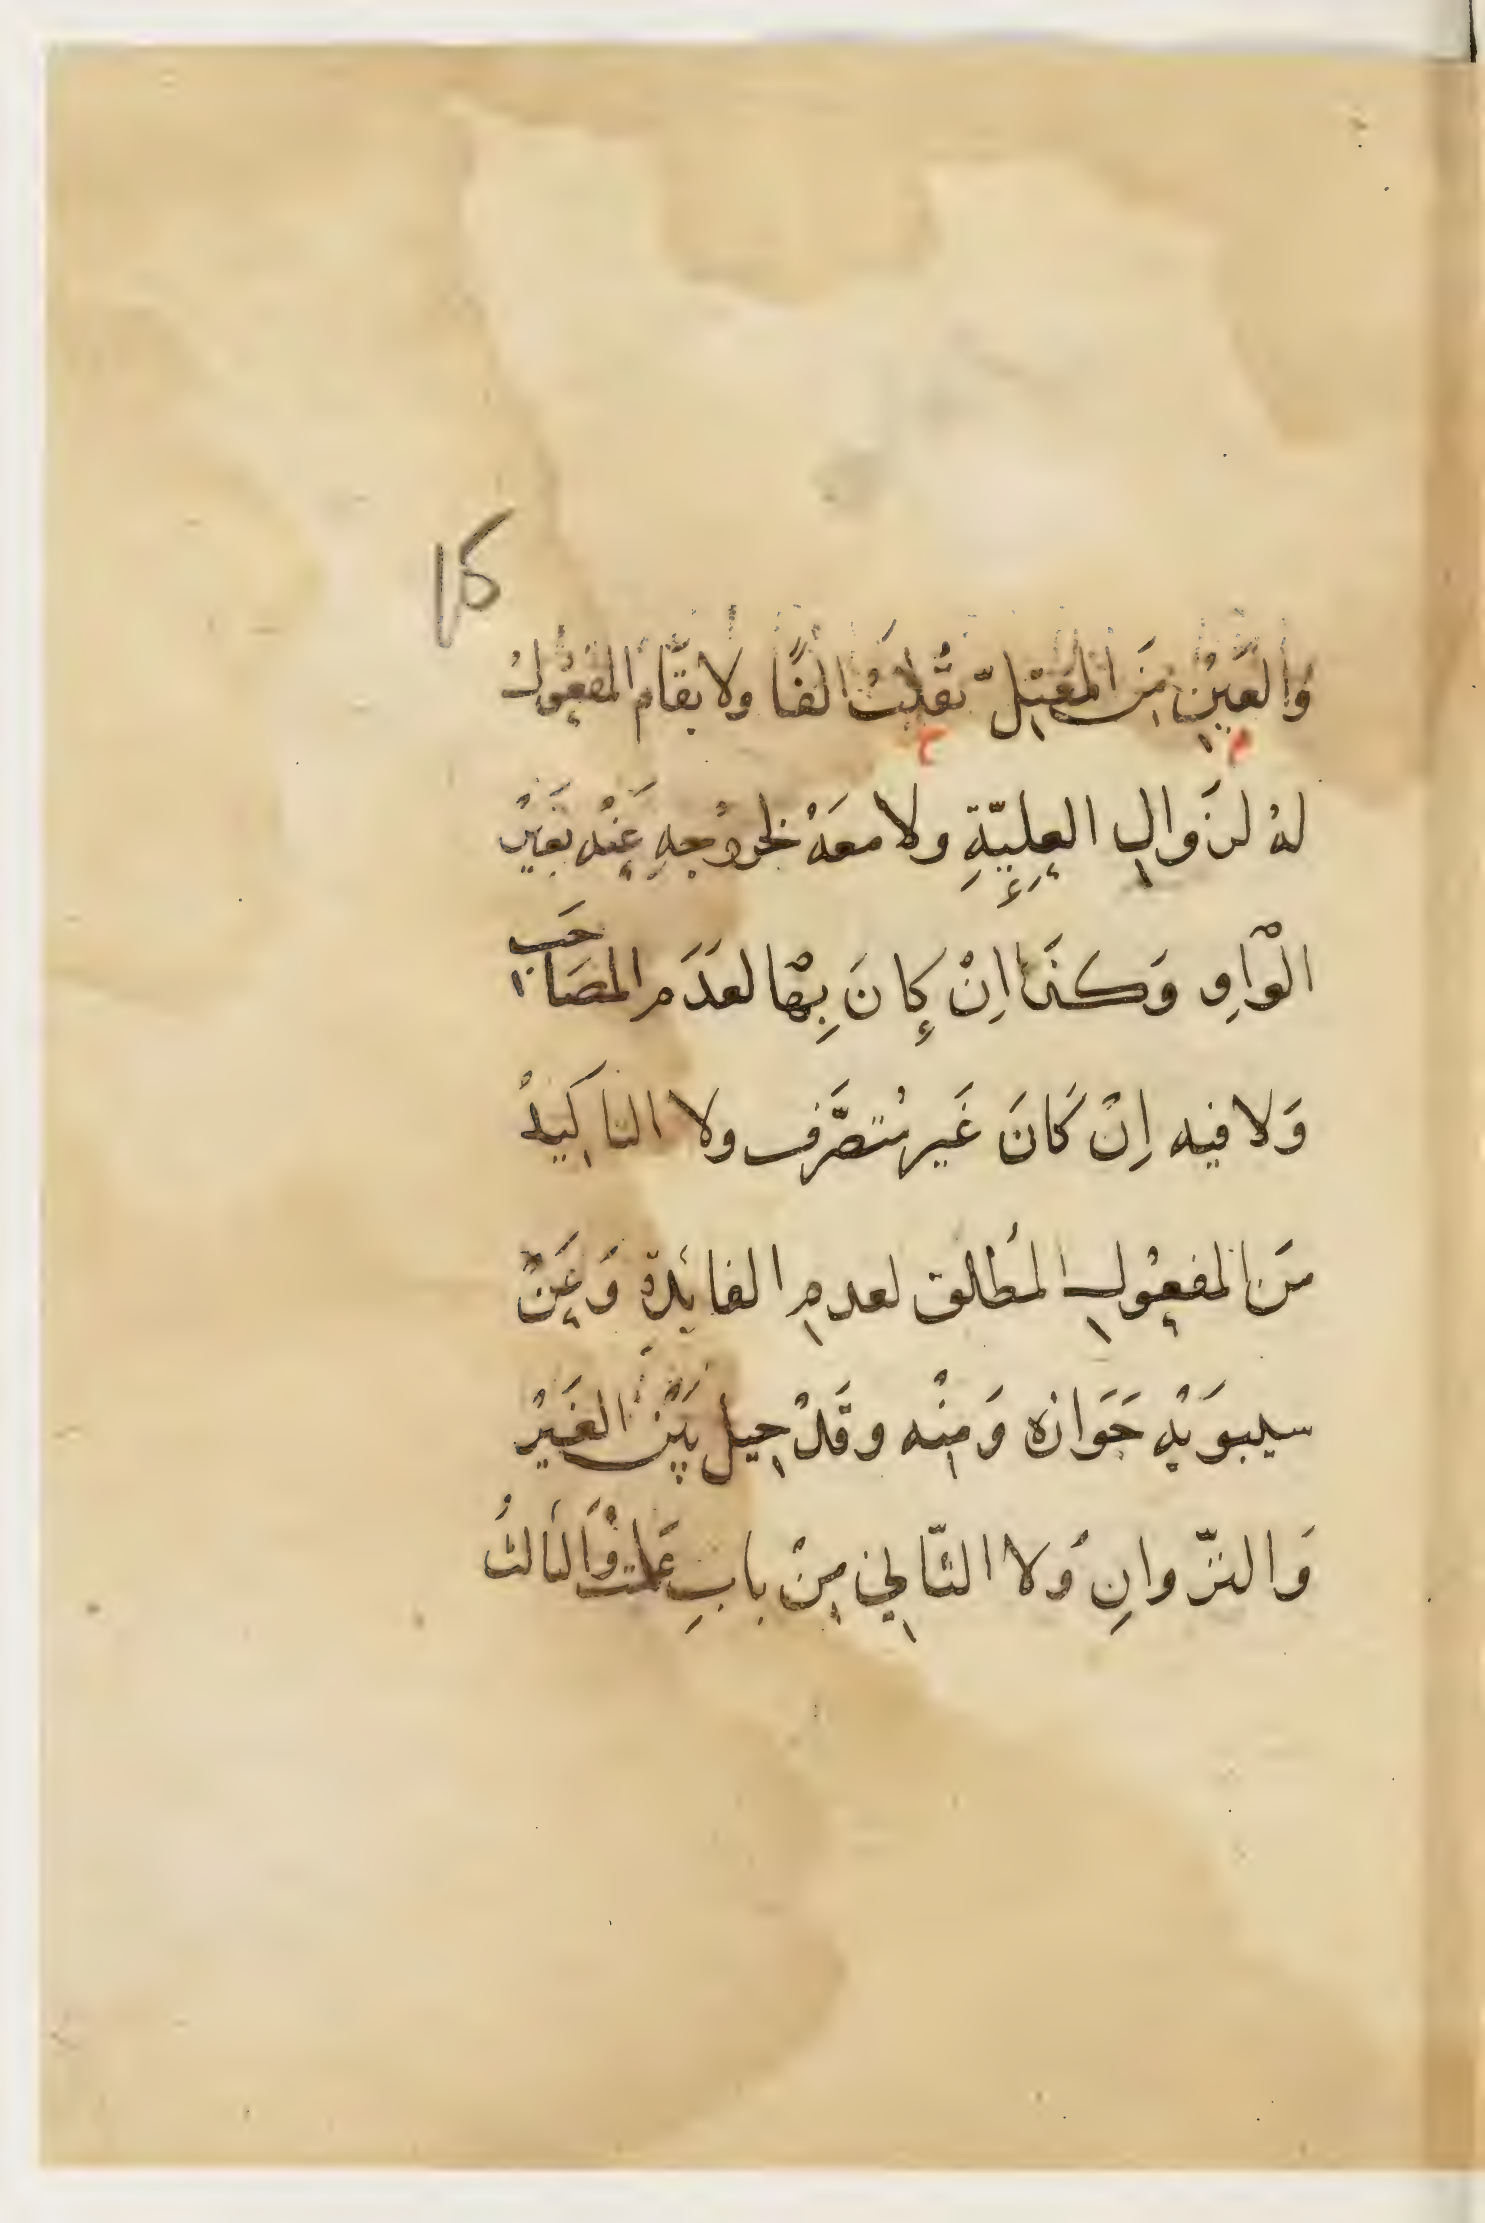 كا
وَالعَيْنُ مِنَ المُعْتَلِّ تُقْلَبُ الفًا ولا يُقَامُ المَفْعُولُ
لهُ لزَوالِ العِلِّيَّةِ ولا معَهُ لخُرُوْجِهِ عَنْهُ بغَيْرِ
الْوَاوِ وَكَذَا اِنْ كانَ بِهَا لعَدَمِ المصَاحَبِ
وَلا فيه اِنْ كَانَ غَير مُتصَرَّف ولا التاكِيدُ
مِنَ المفعُولِ المُطلق لعدمِ الفايدَةِ وَعَنْ
سيبوَيْهِ جَوَازه وَمِنْه وقَدْ حِيل بَيْنَ العَيْرِ
وَالنَّزَوانِ وَلا الثَّاني مِنْ بابِ عَلمت وَالثالثُ